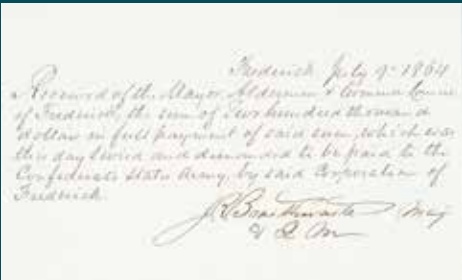 Frederick July 9th 1864
Received of the Mayor, Aldermen & Common Council
of Frederick, the sum of Two hundred thousand
dollars in full payment of said sum, which was
this day levied and demanded to be paid to the
Confederate States Army, by said Corporation of
Frederick.
J R Braithwaite Maj
& Q M